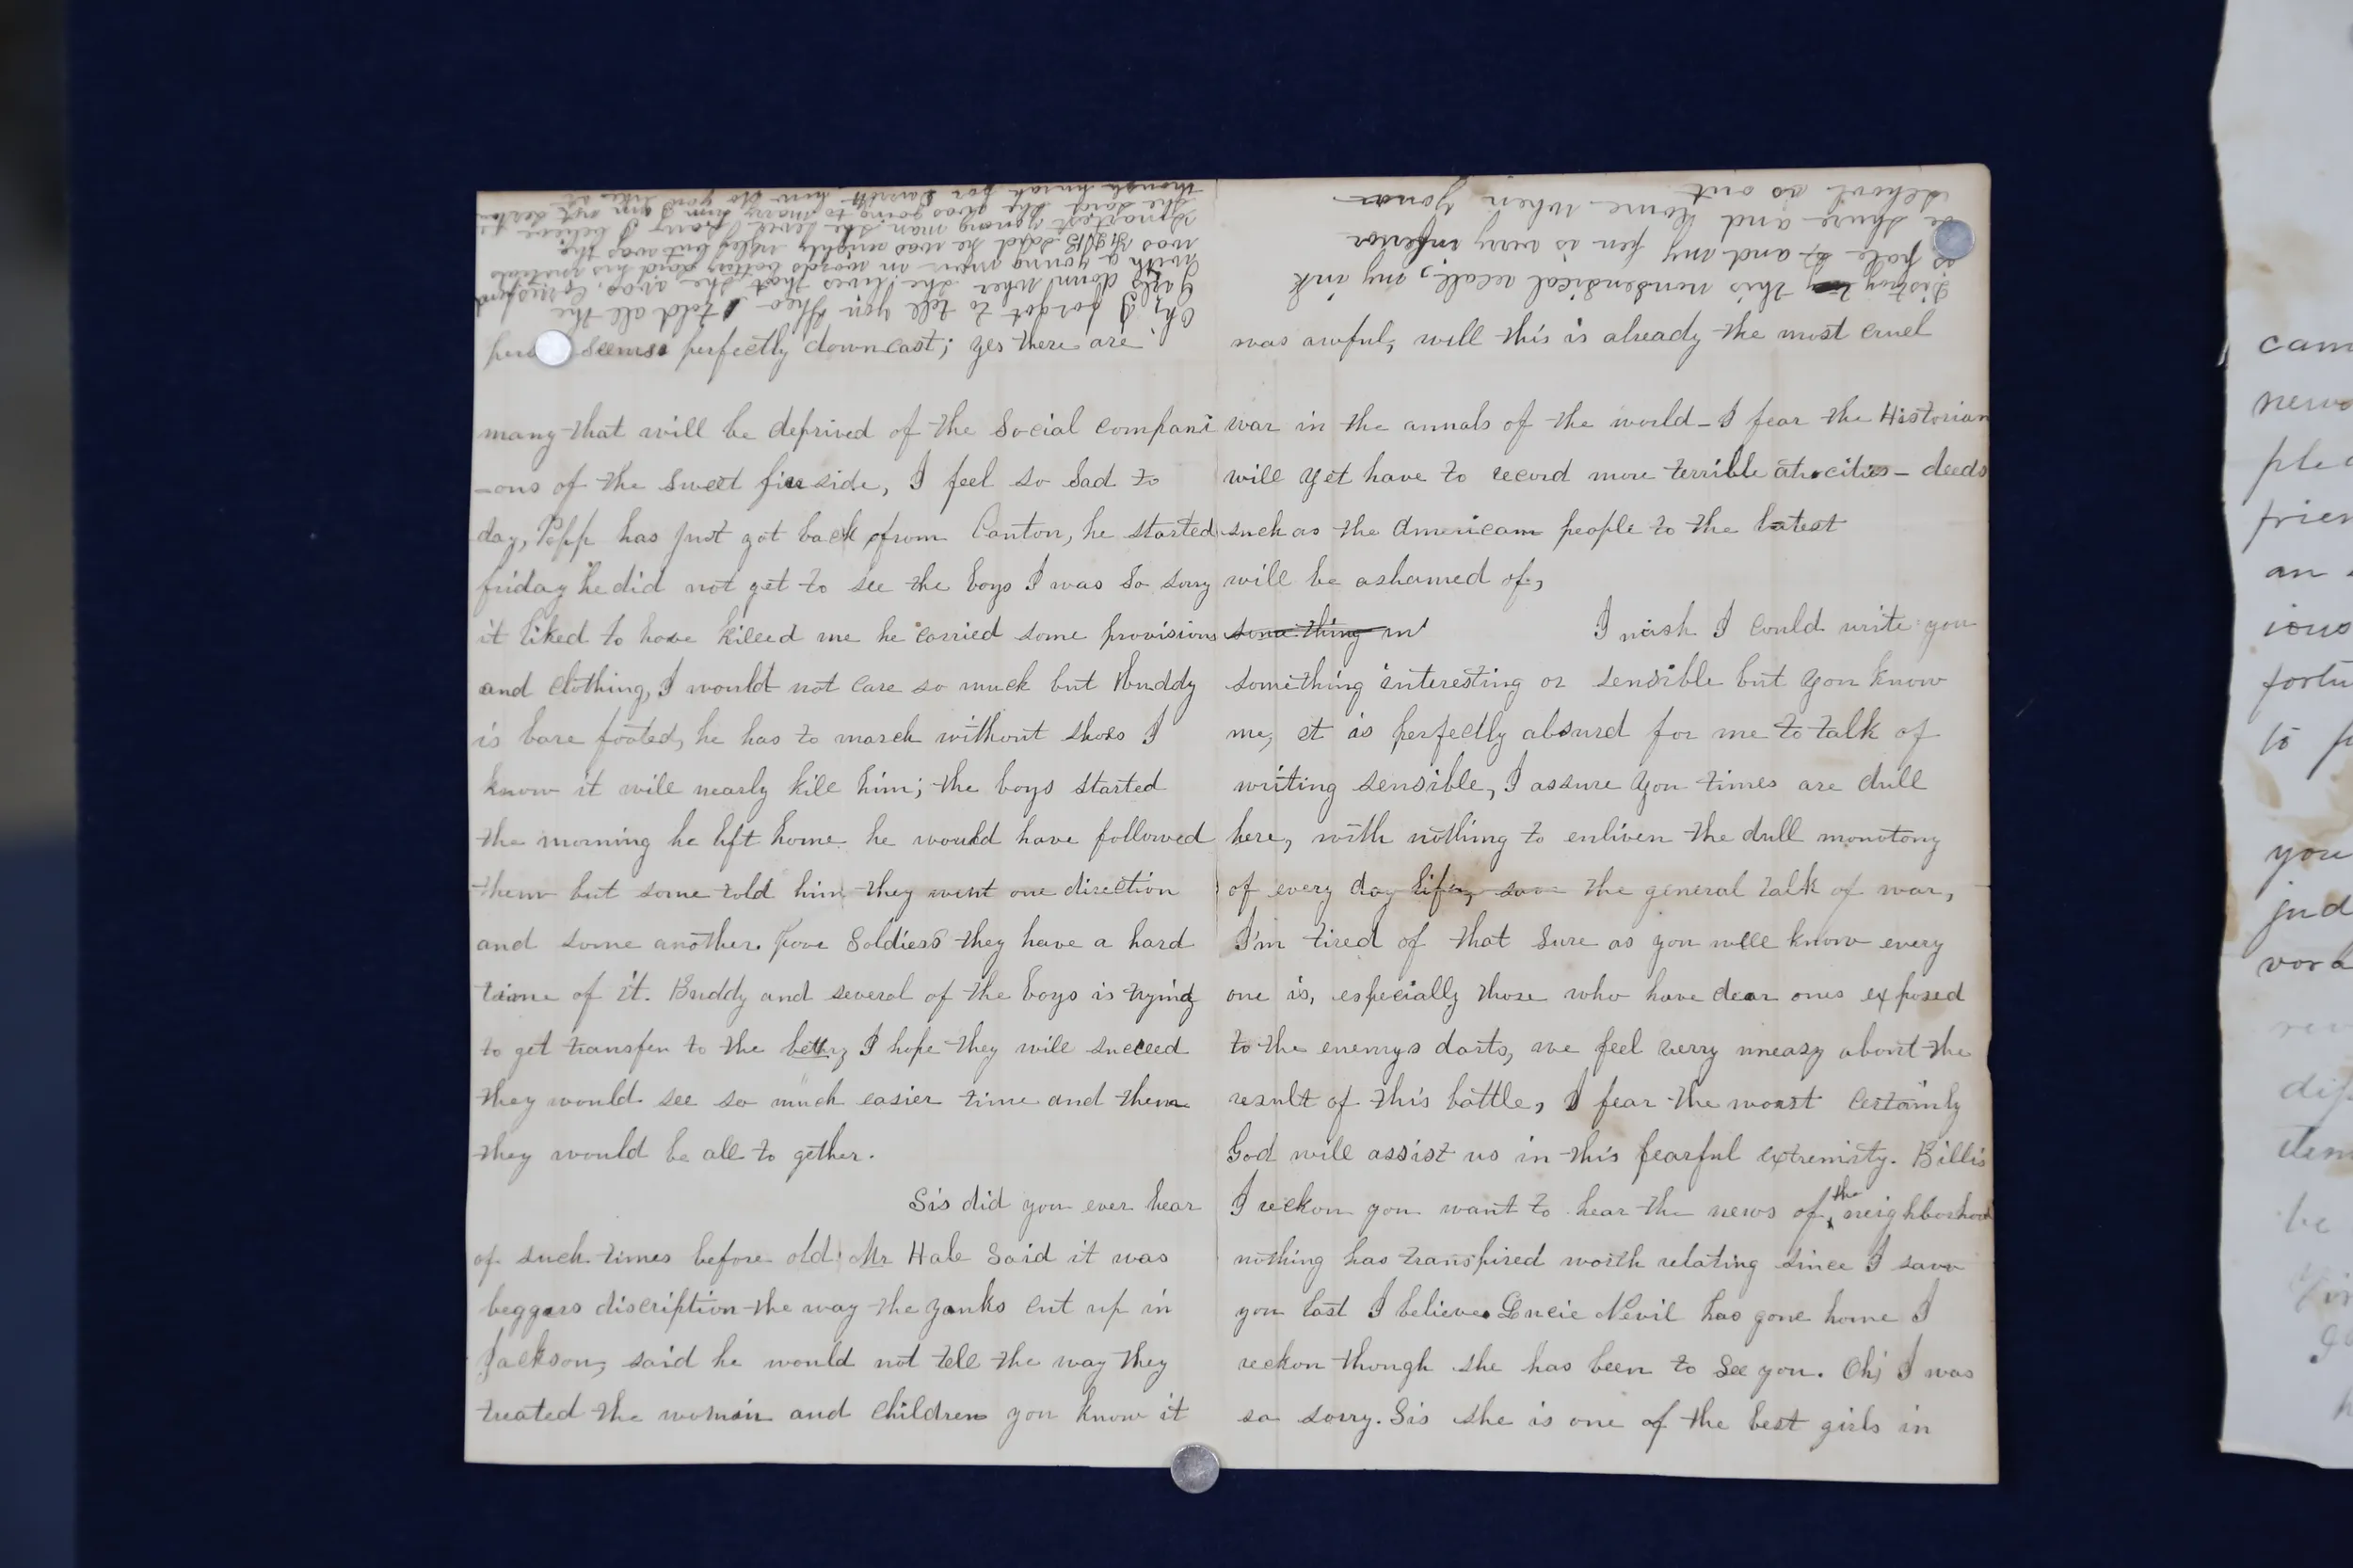 seems perfectly downcast; yes there are
many that will be deprived of the Social compani
-ons of the sweet fireside, I feel so Sad to
day, Papp has just got back from Canton, he started
friday he did not get to see the boys I was so sorry
it liked to have killed me he carried some provisions
and clothing, I would not care so much but Buddy
is bare footed, he has to march without shoes I
know it will nearly kill him; the boys started
the morning he left home he would have followed
them but some told him they went one direction
and some another. Poor Soldiers they have a hard
time of it. Buddy and several of the boys is trying
to get transfer to the I hope they will succeed
they would see so much easier time and then
they would be all to gether.
Sis did you ever hear
of such times before old Mr Hale Said it was
beggars discription the way the yanks cut up in
Jackson, said he would not tell the way they
treated the womin and children you know it
Oh, I forgot to tell you Theo told all the
Girls down wher she lives that she was
with a young man in words betting said his initials
was said he was mighty ugley but was the
smartest young man she loved I believe
she said she was going to marry him I am not certain
was awful, well this is already the most cruel
war in the annals of the world - I fear the Historian
will yet have to record more terrible atrocities - deeds
such as the American people to the latest
will be ashamed of,
something in I wish I could write you
something interesting or sensible but you know
me, it is perfectly absurd for me to talk of
writing sensible, I assure you times are dull
here, with nothing to enliven the dull monotony
of every day life, save the general talk of war,
I'm tired of that sure as you well know every
one is, especially those who have dear ones exposed
to the enemys darts, we feel verry uneasy about the
result of this battle, I fear the worst Certainly
God will assist us in this fearful extremity. Billis
I reckon you want to hear the news of the neighborhood
nothing has transpired worth relating since I saw
you last I believe Lucie Nevil has gone home I
reckon though she has been to see you. Oh; I was
so sorry. Sis she is one of the best girls in
Distroy this nonsensical my ink
is pale and my pen is very inferior
be shure and come when your
school is out
came
news
frien
an
fortu
to
you
jud
be